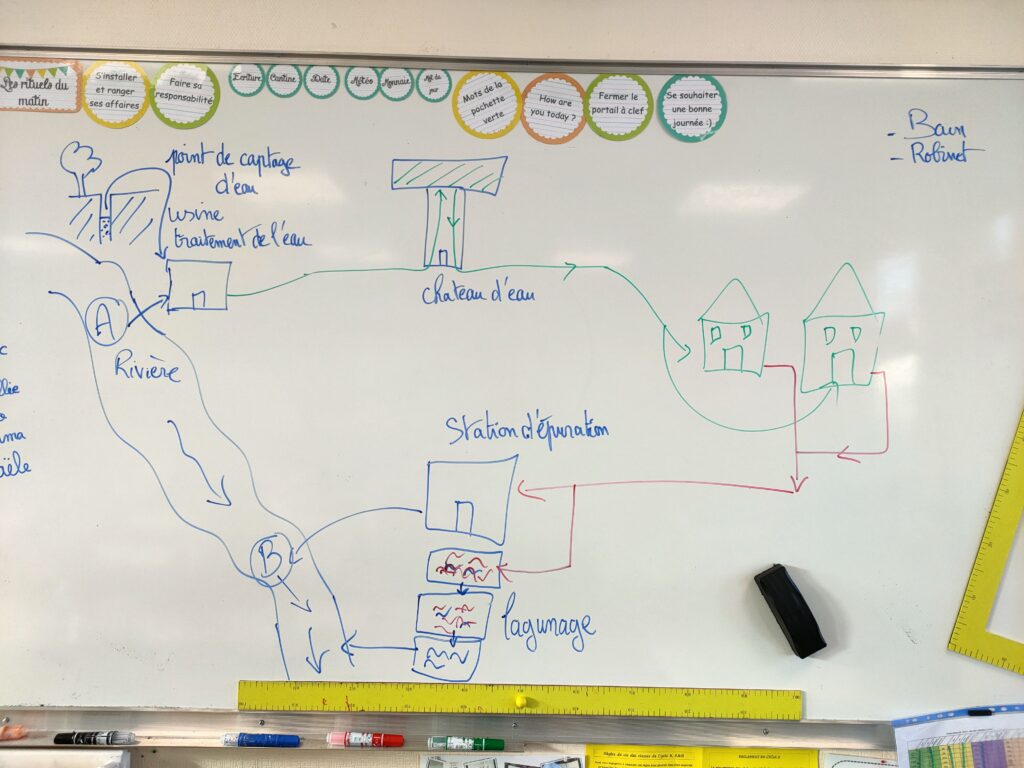 Les rituels du
matin
S'installer
et ranger
ses affaires
Faire sa
responsabilité
Ecriture
Cantine
Date
Météo
Monnaie
Mot du
jour
Mots de la
pochette
verte
How are
you today ?
Fermer le
portail à clef
Se souhaiter
une bonne
journée :)
- Bain
- Robinet
point de captage
d'eau
usine
traitement de l'eau
chateau d'eau
A
Rivière
Station d'épuration
B
lagunage